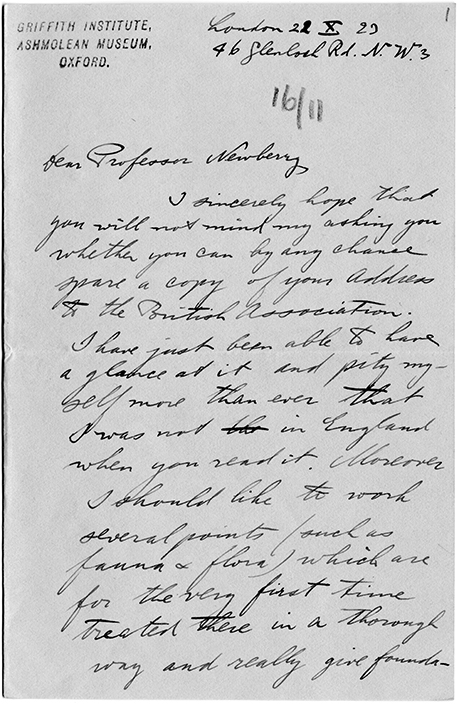 1
GRIFFITH INSTITUTE,
ASHMOLEAN MUSEUM,
OXFORD.
London 22 X 23
46 Glenloch Rd. N. W. 3
16/11
Dear Professor Newberry
I sincerely hope that
you will not mind my asking you
whether you can by any chance
spare a copy of your Address
to the British Association.
I have just been able to have
a glance at it and pity my-
self more than ever that
I was not in England
when you read it. Moreover
I should like to work
several points (such as
fauna & flora) which are
for the very first time
treated there in a thorough
way and really give founda-